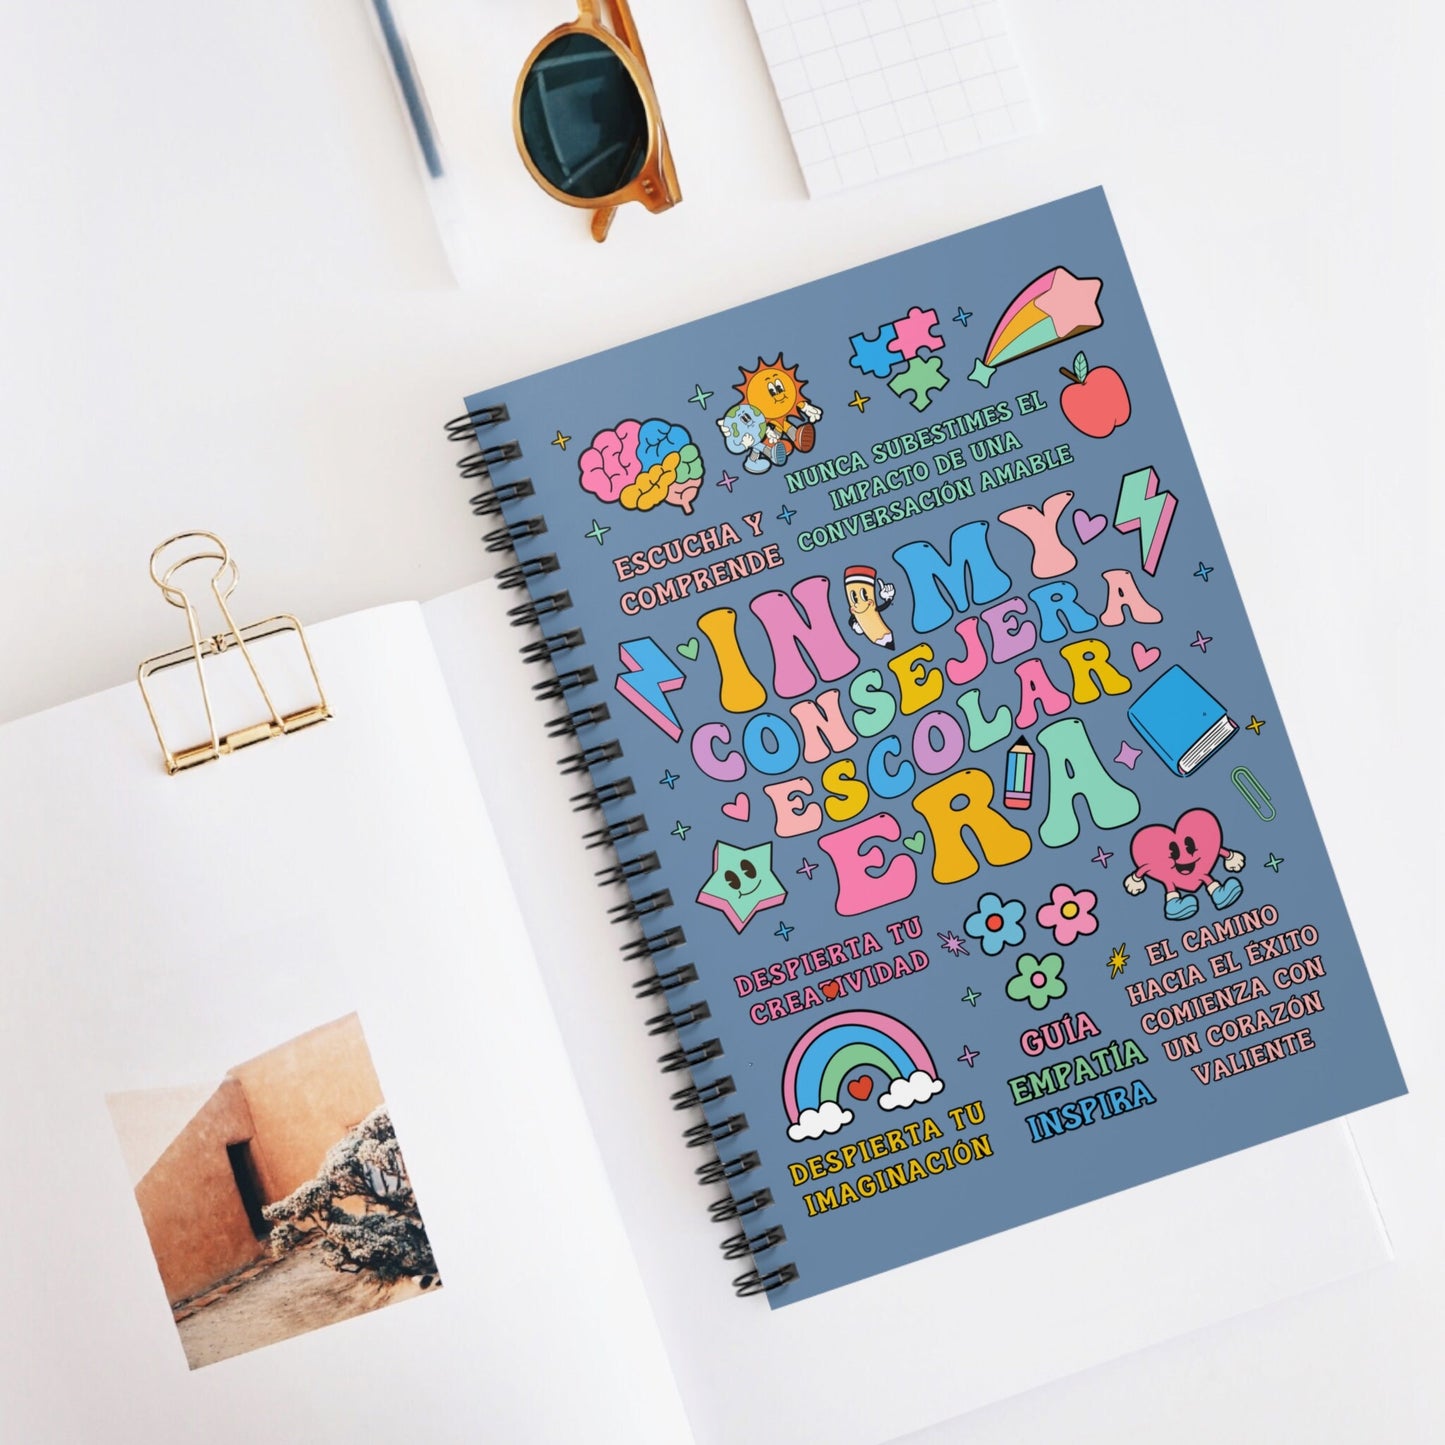 NUNCA SUBESTIMES EL
IMPACTO DE UNA
CONVERSACIÓN AMABLE
ESCUCHA Y
COMPRENDE
IN MY
CONSEJERA
ESCOLAR
ERA
DESPIERTA TU
CREATIVIDAD
EL CAMINO
HACIA EL ÉXITO
COMIENZA CON
UN CORAZÓN
VALIENTE
GUÍA
EMPATÍA
INSPIRA
DESPIERTA TU
IMAGINACIÓN